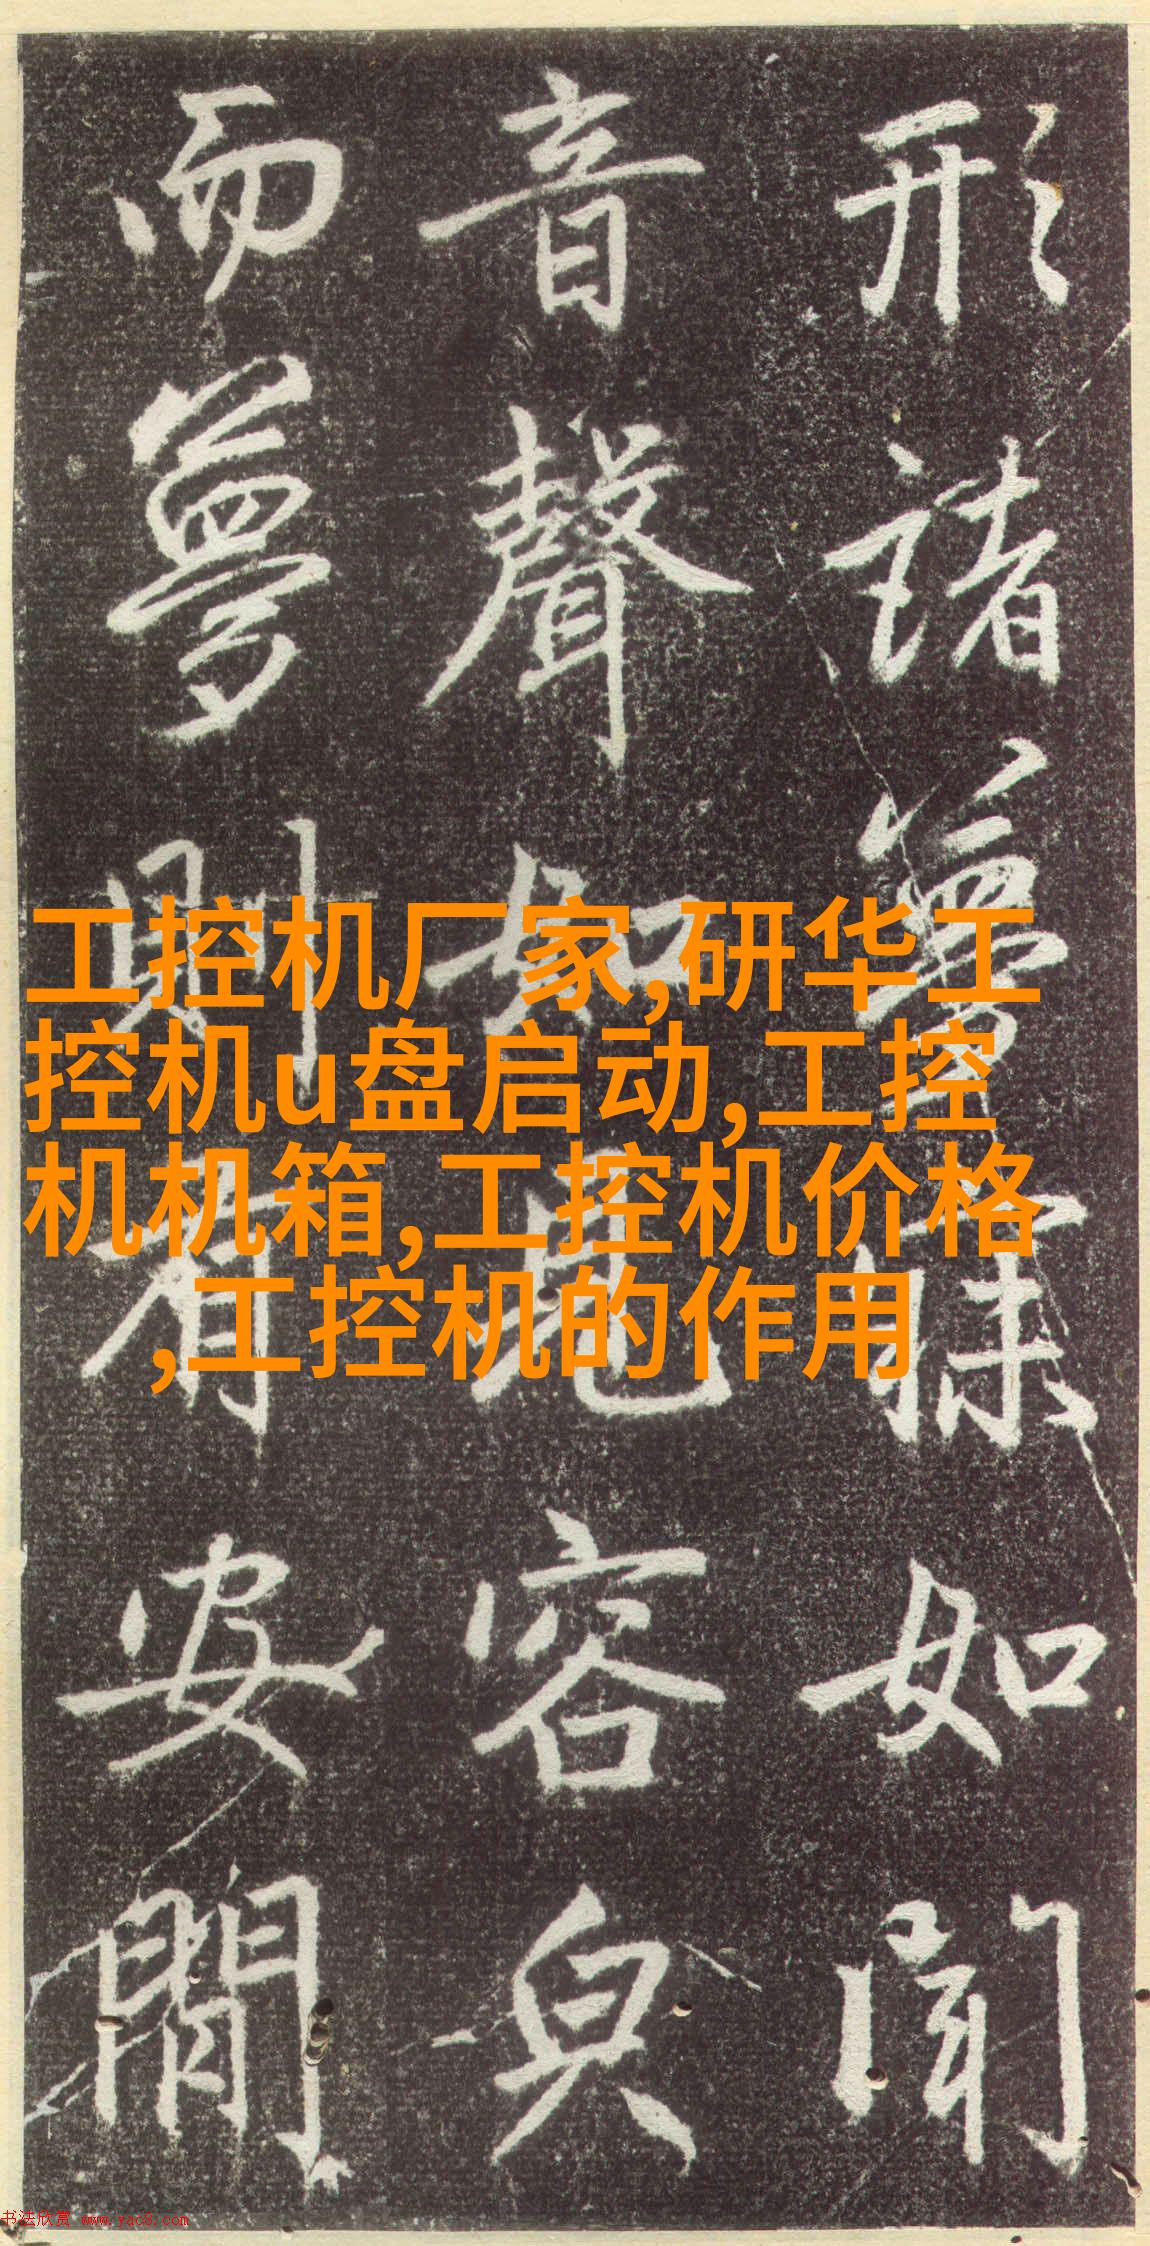 形諸夢寐如聞
音聲如見容皃
而夢則有安閒
工控机厂家,研华工
控机u盘启动,工控
机机箱,工控机价格
,工控机的作用
书法欣赏 www.yac8.com